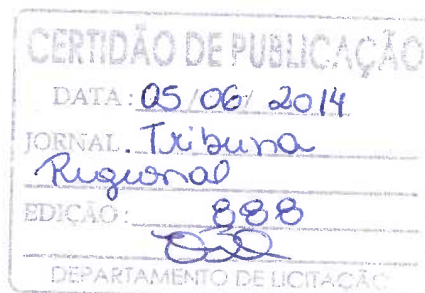 CERTIDÃO DE PUBLICAÇÃO
DATA: 05/06/2014
JORNAL. Tribuna
Regional
EDIÇÃO: 888
DEPARTAMENTO DE LICITAÇÃO